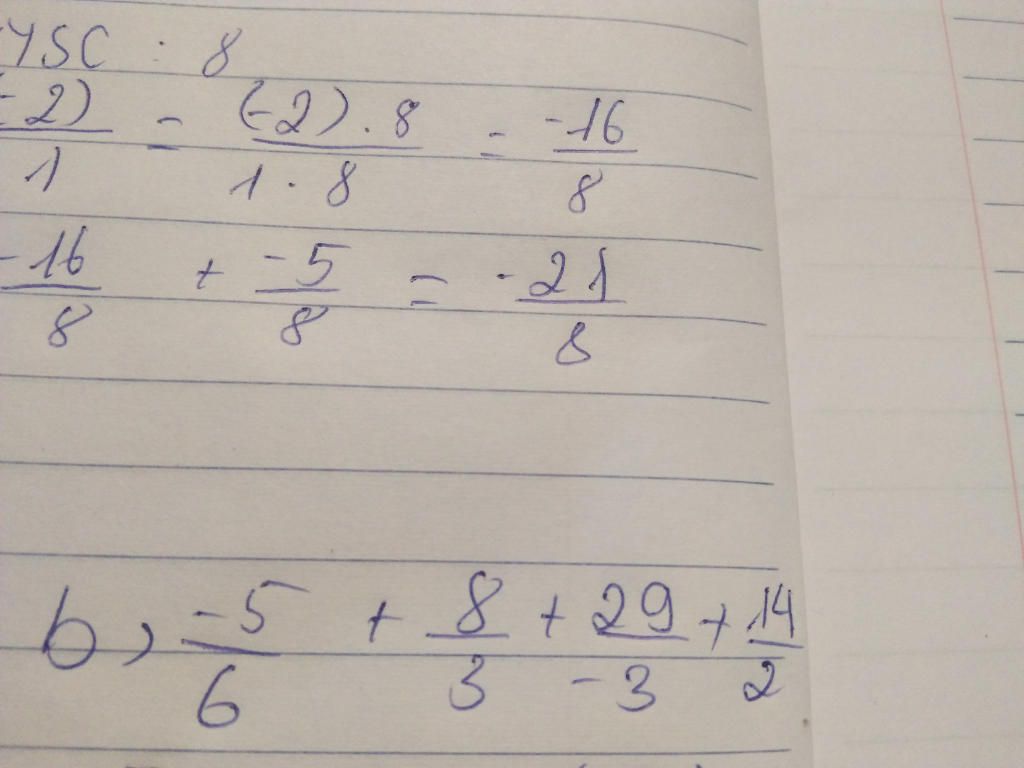 YSC : 8
-2) / 1 = (-2) . 8 / 1 . 8 = -16 / 8
-16 / 8 + -5 / 8 = -21 / 8
b, -5 / 6 + 8 / 3 + 29 / -3 + 14 / 2